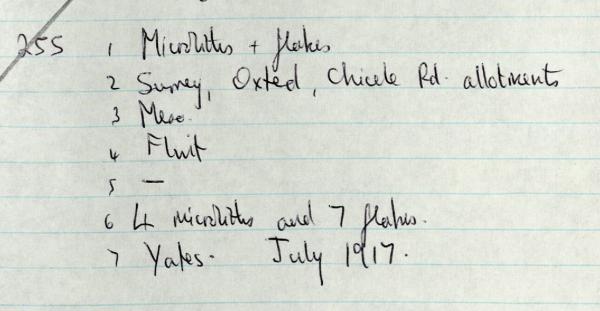 255 1 Microliths + flakes
2 Surrey, Oxted, Chicele Rd. allotments
3 Meso.
4 Flint
5 —
6 4 microliths and 7 flakes.
7 Yates. July 1917.